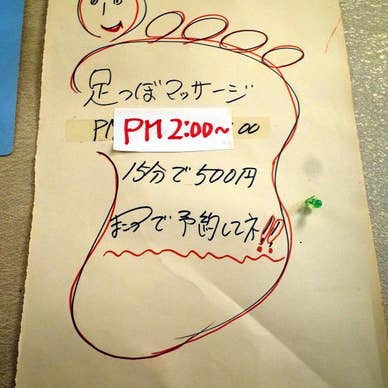 足つぼマッサージ
PM 2:00~ :00
15分で500円
で予約してネ!!